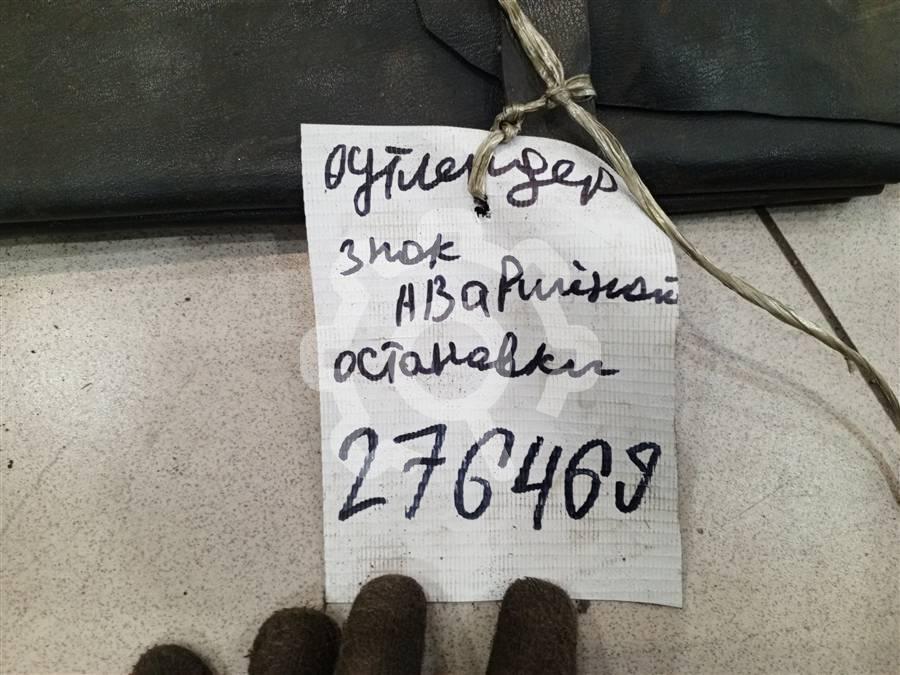 оутлендер
знак
АВаРийной
остановки
276469